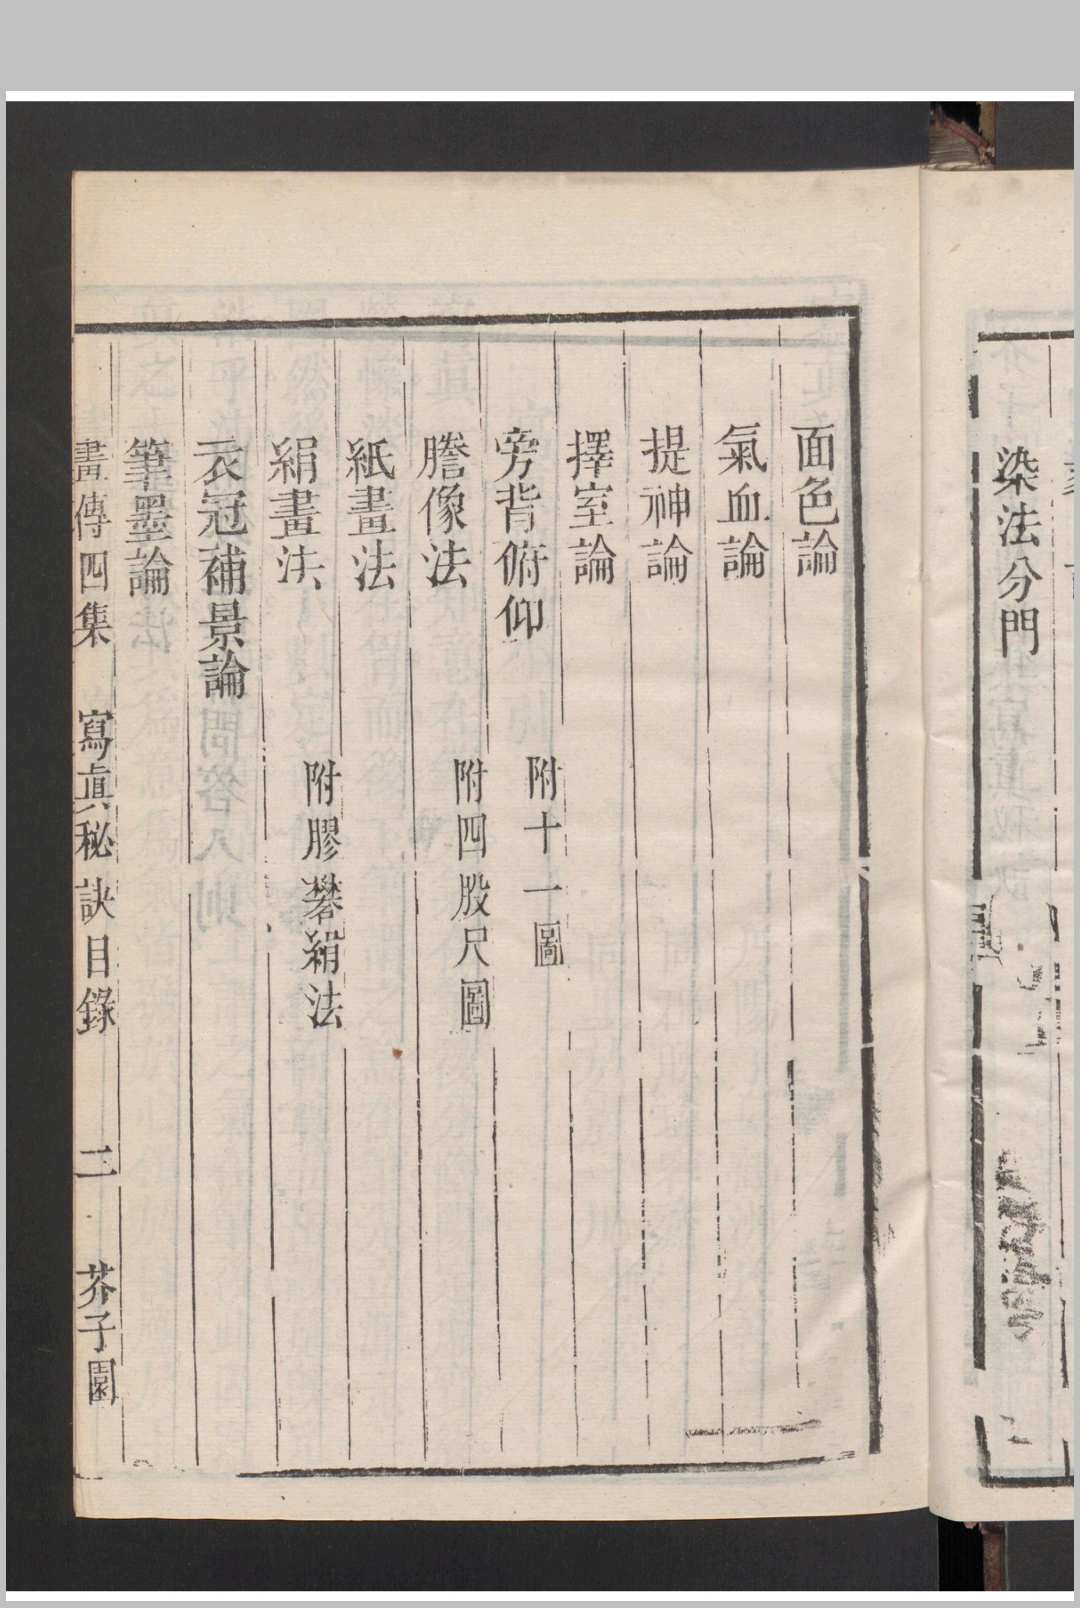 染法分門
面色論
氣血論
提神論
擇室論
旁背俯仰 附十一圖
謄像法 附四股尺圖
紙畫法
絹畫法 附膠礬絹法
衣冠補景論
筆墨論
畫傳四集 寫眞秘訣目錄 二 芥子園